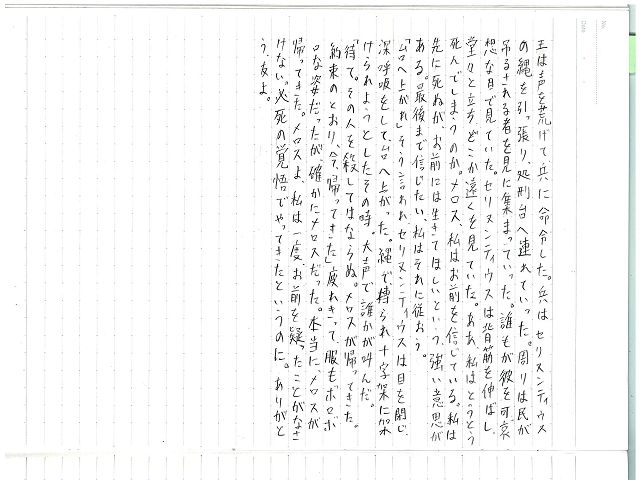 No.
Date
王は声を荒げて、兵に命令した。兵はセリヌンティウス
の縄を引っ張り、処刑台へ連れていった。周りは民が
吊るされる者を見に集まっていった。誰もが彼を可哀
想な目で見ていた。セリヌンティウスは背筋を伸ばし、
堂々と立ち、どこか遠くを見ていた。ああ、私はとうとう
死んでしまうのか。メロス、私はお前を信じている。私は
先に死ぬが、お前には生きてほしいという、強い意思が
ある。最後まで信じたい、私はそれに従おう。
「台へ上がれ」そう言われ、セリヌンティウスは目を閉じ、
深呼吸をして台へ上がった。縄で縛られ、十字架に架
けられようとしたその時。大声で誰かが叫んだ。
「待て。その人を殺してはならぬ。メロスが帰ってきた。
約束のとおり、今、帰ってきた」疲れきって、服もボロボ
ロな姿だったが、確かにメロスだった。本当に、メロスが
帰ってきた。メロスよ、私は一度、お前を疑ったことがなさ
けない。必死の覚悟でやってきたというのに。ありがと
う、友よ。